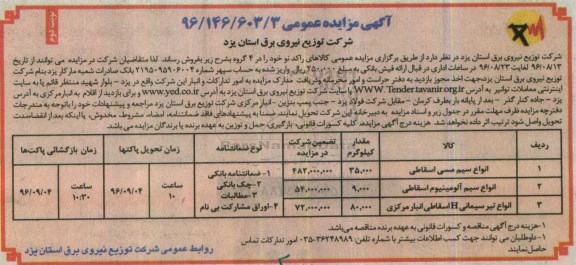 آگهی مزایده عمومی ۹۶/۱۴۶/۶۰۳/۳
نوبت دوم
شرکت توزیع نیروی برق استان یزد
شرکت توزیع نیروی برق استان یزد در نظر دارد از طریق برگزاری مزایده عمومی کالاهای راکد نو خود را در ۴ گروه بشرح زیر بفروش رساند. لذا متقاضیان شرکت در مزایده می توانند از تاریخ
۹۶/۰۸/۱۳ لغایت ۹۶/۰۸/۲۳ در ساعات اداری در قبال ارائه فیش بانکی به مبلغ ۲۵۰/۰۰۰ ریال واریز شده به حساب سپهر شماره ۲۱۹۵۰۹۵۹۰۶۰۰۴ بانک صادرات شعبه مارکار یزد بنام شرکت
توزیع نیروی برق استان یزد،جهت اخذ مجوز بازدید به دفتر حراست و امور محرمانه ودریافت مدارک مزایده به امور تدارکات و انبار این شرکت واقع در یزد - بلوار شهید منتظر قائم یا به سایت
اینترنتی معاملات توانیر به آدرس WWW.Tender.tavanir.org.ir و یا سایت توزیع برق استان یزد به آدرس www.yed.co.ir و برای بازدید از اقلام به انبار مرکزی به آدرس
یزد - جاده کنار گذر - بعد از پایانه بار بطرف کرمان - مقابل شرکت فولاد یزد - جنب پمپ بنزین - انبار مرکزی شرکت توزیع برق استان یزد مراجعه و پیشنهادات خود را با توجه به مندرجات
دفترچه مزایده ظرف مهلت مقرر در جدول زیر و اسناد مزایده به دبیرخانه این شرکت تحویل نمایند. ضمنا به پیشنهادهای فاقد ضمانتنامه، امضاء، مشروط، مخدوش، یا اینکه بعد از انقضاءمدت
تحویل واصل شود ترتیب اثر داده نخواهد شد. هزینه درج آگهی مزایده، کلیه کسورات قانونی، بارگیری، حمل و توزین به عهده برنده یا برندگان مزایده می باشد.
ردیف کالا مقدار کیلوگرم تضمین شرکت در مزایده نوع ضمانتنامه زمان تحویل پاکتها زمان بازگشائی پاکت‌ها
۱ انواع سیم مسی اسقاطی ۳۵,۰۰۰ ۴۸۲,۰۰۰,۰۰۰
۲ انواع سیم آلومینیوم اسقاطی ۹,۰۰۰ ۵۴,۰۰۰,۰۰۰
۳ انواع تیر سیمانی H اسقاطی انبار مرکزی ۸۰,۰۰۰ ۷۲,۰۰۰,۰۰۰
۱- ضمانتنامه بانکی
۲- چک بانکی
۳- مطالبات
۴- اوراق مشارکت بی نام
ساعت ۱۰ ۹۶/۰۹/۰۴
ساعت ۱۰:۳۰ ۹۶/۰۹/۰۴
۱- هزینه درج آگهی مناقصه و کسورات قانونی به عهده برنده مناقصه می‌باشد.
۲- داوطلبان می توانند جهت کسب اطلاعات بیشتر با شماره تلفن: ۳۶۲۴۸۹۸۹-۰۳۵ امور تدارکات تماس
حاصل نمایند.
روابط عمومی شرکت توزیع نیروی برق استان یزد